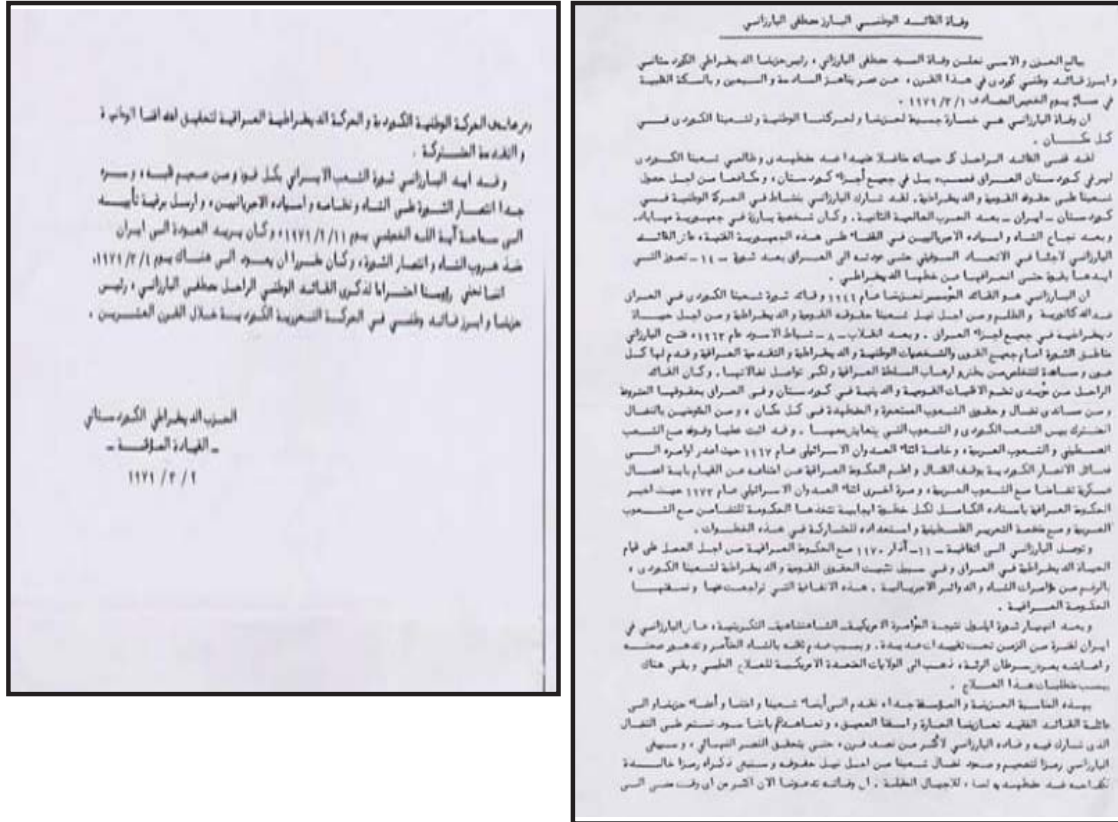 وفاة القائد الوطني البارز مصطفى البارزاني
ببالغ الحزن والاسى نعلن وفاة السيد مصطفى البارزاني، رئيس حزبنا الديمقراطي الكوردستاني
وابرز قائد وطني كوردي في هذا القرن، عن عمر يناهز السادسة والسبعين وبالسكتة القلبية
في مساء يوم الخميس المصادف ١٩٧٩/٣/١ .
ان وفاة البارزاني هي خسارة جسيمة لحزبنا ولحركتنا الوطنية ولشعبنا الكوردى فــي
كل مكــان .
لقد قضى القائد الراحل كل حياته مناضلا عنيدا ضد مضطهدى وظالمي شعبنا الكوردى
ليس في كوردستان العراق فحسب، بل في جميع أجزاء كوردستان، وكافح من اجل حصول
شعبنا على حقوقه القومية والديمقراطية. لقد شارك البارزاني بنشاط في الحركة الوطنية فــي
كوردستان ــ ايران ــ بعد الحرب العالمية الثانية. وكان شخصية بارزة في جمهورية مهاباد.
وبعد نجاح الشاه واسياده الامريكيين في القضاء على هذه الجمهورية الفتية، عاش القائد
البارزاني لاجئا في الاتحاد السوفيتي حتى عودته الى العراق بعد ثورة ــ ١٤ ــ تموز التي
ايدها بقوة حتى انحرافها عن خطها الديمقراطي.
ان البارزاني هو القائد المؤسس لحزبنا عام ١٩٤٦ وقائد ثورة شعبنا الكوردى في العراق
ضد الدكتاتورية والظلم ومن اجل نيل شعبنا حقوقه القومية والديمقراطية ومن اجل حيــاة
ديمقراطية في جميع اجزاء العراق. وبعد انقلاب ــ ٨ ــ شباط الاسود عام ١٩٦٣، فتح البارزاني
مناطق الثورة امام جميع القوى والشخصيات الوطنية والديمقراطية والتقدمية العراقية وقدم لها كــل
عون ومساعدة للتخلص من بطش وارهاب السلطة العراقية ولكي تواصل نضالاتها. وكان القائد
الراحل من مؤيدى تمتع الاقليات القومية والدينية في كوردستان وفي العراق بحقوقها المشروعة
ومن مساندى نضال وحقوق الشعوب المستعمرة والمضطهدة في كل مكان، ومن المؤمنين بالنضال
المشترك بين الشعب الكوردى والشعوب التي يتعايش معها. وقد اثبت عمليا وقوفه مع الشعب
الفلسطيني والشعوب العربية، وخاصة اثناء العدوان الاسرائيلى عام ١٩٦٧ حيث اصدر اوامره الــى
فصائل الانصار الكوردية بوقف القتال واعلم الحكومة العراقية عن امتناعه عن القيام باية اعمال
عسكرية تضامنا مع الشعوب العربية، ومرة اخرى اثناء العدوان الاسرائيلى عام ١٩٧٣ حيث اخبر
الحكومة العراقية باسناده الكامل لكل خطوة ايجابية تتخذها الحكومة للتضامن مع الشــعوب
العربية ومع منظمة التحرير الفلسطينية واستعداده للمشاركة في هذه الخطــوات .
وتوصل البارزاني الى اتفاقية ــ ١١ ــ آذار ١٩٧٠ مع الحكومة العراقية من اجل العمل على قيام
الحياة الديمقراطية في العراق وفي سبيل تثبيت الحقوق القومية والديمقراطية لشعبنا الكوردى،
بالرغم من مؤامرات الشاه والدوائر الامبريالية. هذه الاتفاقية التي تراجعت عنها ونسفتهــا
الحكومة العــراقية .
وبعد انهيار ثورة ايلول نتيجة المؤامرة الامريكية الشاهنشاهية التكريتية، عاش البارزاني في
ايران لفترة من الزمن تحت تقييدات عديدة. وبسبب عدم ثقته بالشاه المتآمر وتدهور صحتــه
واصابته بمرض سرطان الرئة، ذهب الى الولايات المتحدة الامريكية للعلاج الطبي وبقي هناك
بسبب متطلبات هذا العــلاج .
بهذه المناسبة الحزينة والمؤسفة جدا، نقدم الى أبناء شعبنا وامتنا وأعضاء حزبنا والى
عائلة القائد الفقيد تعازينا الحارة واسفنا العميق، ونعاهدهم باننا سوف نستمر على النضال
الذى شارك فيه وقاده البارزاني لأكثر من نصف قرن، حتى يتحقق النصر النهــائي، وسيبقى
البارزاني رمزا لتصميم وصمود نضال شعبنا من اجل نيل حقوقه وستبقى ذكراه رمزا خالــدة
لكفاحه ضد مضطهديه لنا، للاجيال المقبلة. ان وفاته تدعونا الان اكثر من اى وقت مضى الــى
الحركة الوطنية الكوردية والحركة الديمقراطية العراقية لتحقيق اهدافنا الوطنية
والتقدمية المشتركة .
وقد ايد البارزاني ثورة الشعب الايراني بكل قوة ومن صميم قلبه، وســره
جدا انتصار الثورة على الشاه ونظامه واسياده الامريكيين، وارسل برقية تأييد
الى سماحة آية الله الخميني يوم ١٩٧٩/٢/١١، وكان يريد العودة الى ايران
منذ هروب الشاه وانتصار الثورة، وكان مقررا ان يعود الى هناك يوم ١٩٧٩/٣/٤.
اننا نحني رؤوسنا احتراما لذكرى القائد الوطني الراحل مصطفى البارزاني، رئيس
حزبنا وابرز قائد وطني في الحركة التحررية الكوردية خلال القرن العشــرين .
الحزب الديمقراطي الكوردستاني
ــ القيادة المؤقتــة ــ
١٩٧٩ / ٣ / ٢